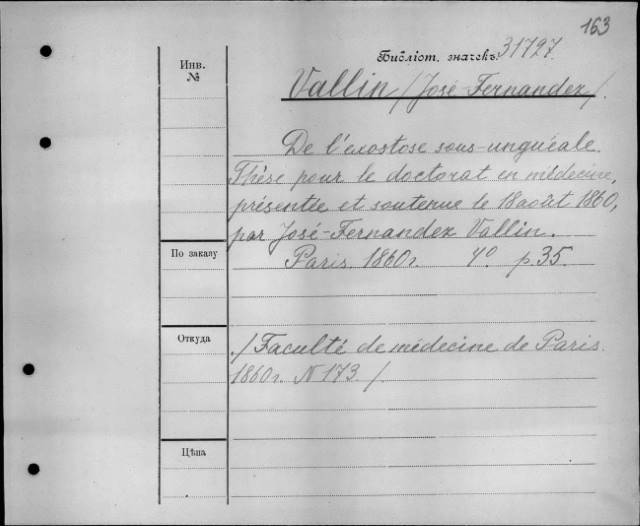 163
Библіот. значекъ 31727.
Инв.
№
Vallin /José-Fernandez/.
De l'exostose sous-unguéale.
Thèse pour le doctorat en médecine,
présentée et soutenue le 18 août 1860,
par José-Fernandez Vallin.
По заказу
Paris. 1860г. 4° p. 35.
Откуда
/Faculté de médecine de Paris.
1860г. N 173./
Цѣна